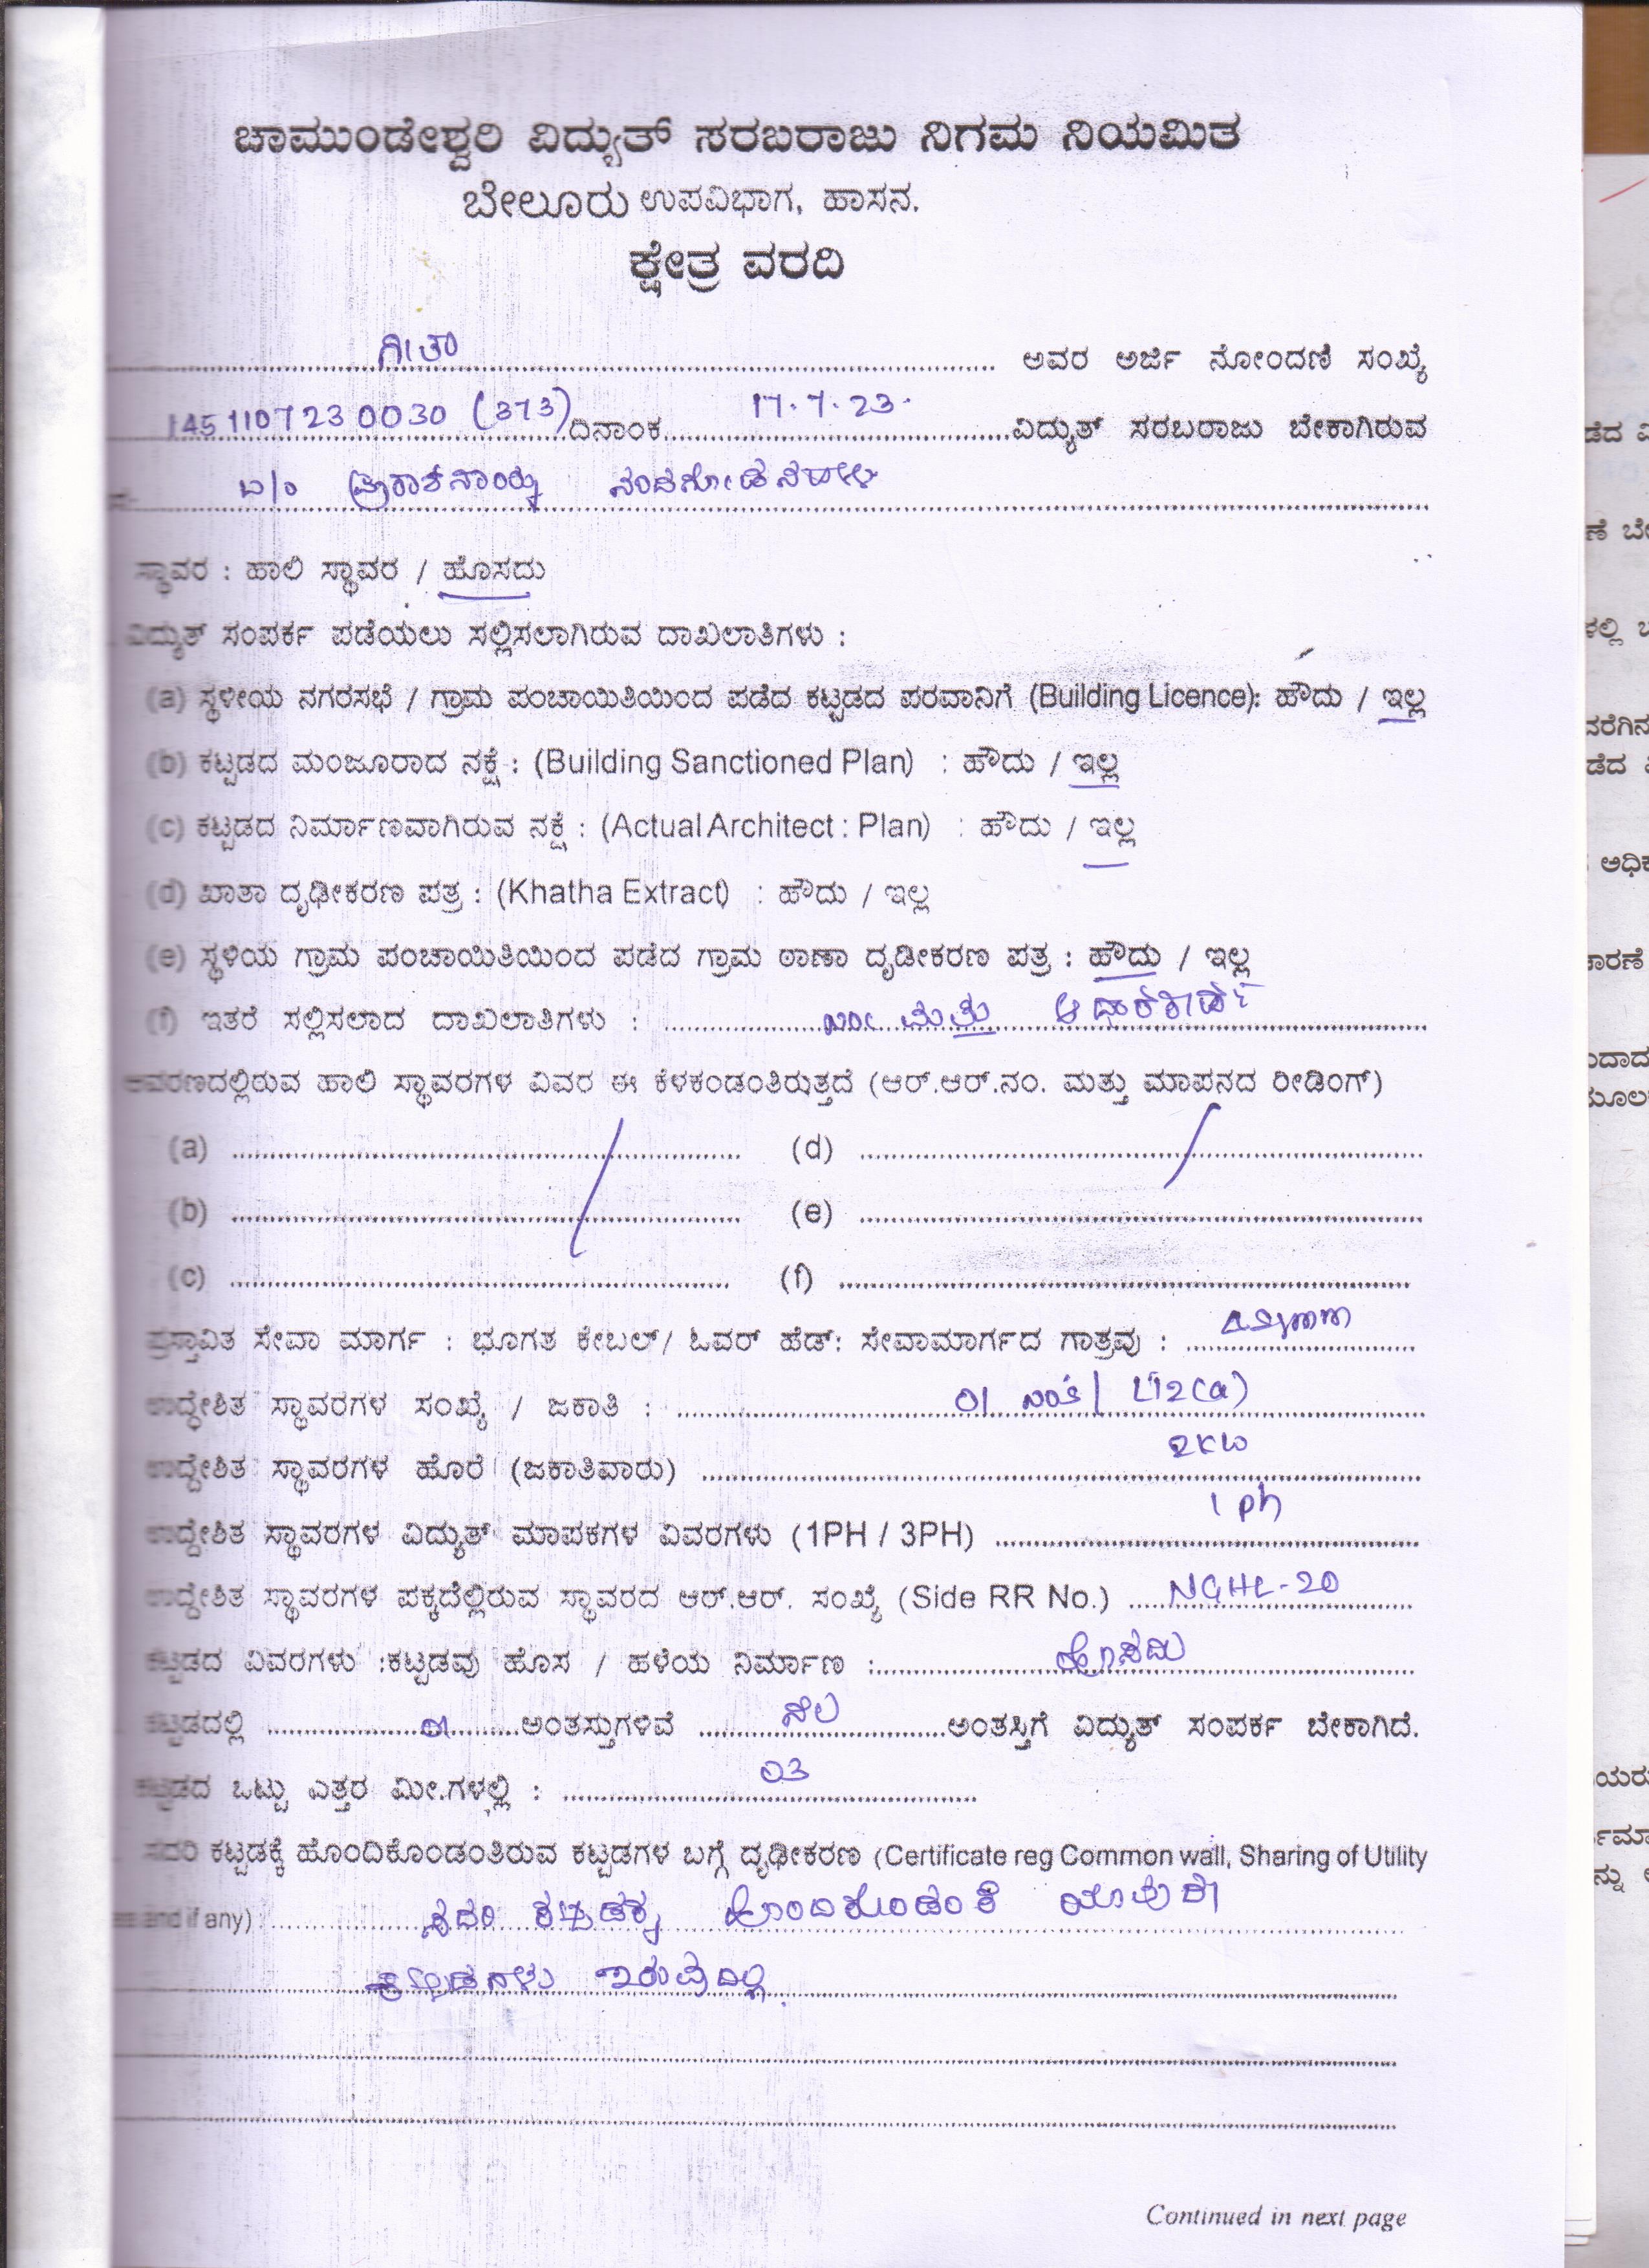 ಚಾಮುಂಡೇಶ್ವರಿ ವಿದ್ಯುತ್ ಸರಬರಾಜು ನಿಗಮ ನಿಯಮಿತ
ಬೇಲೂರು ಉಪವಿಭಾಗ, ಹಾಸನ.
ಕ್ಷೇತ್ರ ವರದಿ
ಗೀತಾ ಅವರ ಅರ್ಜಿ ನೋಂದಣಿ ಸಂಖ್ಯೆ
145110723 0030 (373) ದಿನಾಂಕ 17.7.23. ವಿದ್ಯುತ್ ಸರಬರಾಜು ಬೇಕಾಗಿರುವ
ಸ್ಥಾವರ : ಹಾಲಿ ಸ್ಥಾವರ / ಹೊಸದು
ವಿದ್ಯುತ್ ಸಂಪರ್ಕ ಪಡೆಯಲು ಸಲ್ಲಿಸಲಾಗಿರುವ ದಾಖಲಾತಿಗಳು :
(a) ಸ್ಥಳೀಯ ನಗರಸಭೆ / ಗ್ರಾಮ ಪಂಚಾಯಿತಿಯಿಂದ ಪಡೆದ ಕಟ್ಟಡದ ಪರವಾನಿಗೆ (Building Licence): ಹೌದು / ಇಲ್ಲ
(b) ಕಟ್ಟಡದ ಮಂಜೂರಾದ ನಕ್ಷೆ : (Building Sanctioned Plan) : ಹೌದು / ಇಲ್ಲ
(c) ಕಟ್ಟಡದ ನಿರ್ಮಾಣವಾಗಿರುವ ನಕ್ಷೆ : (Actual Architect : Plan) : ಹೌದು / ಇಲ್ಲ
(d) ಖಾತಾ ದೃಢೀಕರಣ ಪತ್ರ : (Khatha Extract) : ಹೌದು / ಇಲ್ಲ
(e) ಸ್ಥಳಿಯ ಗ್ರಾಮ ಪಂಚಾಯಿತಿಯಿಂದ ಪಡೆದ ಗ್ರಾಮ ಠಾಣಾ ದೃಡೀಕರಣ ಪತ್ರ : ಹೌದು / ಇಲ್ಲ
(f) ಇತರೆ ಸಲ್ಲಿಸಲಾದ ದಾಖಲಾತಿಗಳು : ಮತ್ತು ಆಧಾರಕಾರ್ಡ್
ಆವರಣದಲ್ಲಿರುವ ಹಾಲಿ ಸ್ಥಾವರಗಳ ವಿವರ ಈ ಕೆಳಕಂಡಂತಿರುತ್ತದೆ (ಆರ್.ಆರ್.ನಂ. ಮತ್ತು ಮಾಪನದ ರೀಡಿಂಗ್)
(a) (d)
(b) (e)
(c) (f)
ಪ್ರಸ್ತಾವಿತ ಸೇವಾ ಮಾರ್ಗ : ಭೂಗತ ಕೇಬಲ್/ ಓವರ್ ಹೆಡ್: ಸೇವಾಮಾರ್ಗದ ಗಾತ್ರವು :
ಉದ್ದೇಶಿತ ಸ್ಥಾವರಗಳ ಸಂಖ್ಯೆ / ಜಕಾತಿ : 01 LT2(a)
ಉದ್ದೇಶಿತ ಸ್ಥಾವರಗಳ ಹೊರೆ (ಜಕಾತಿವಾರು) 2KW
ಉದ್ದೇಶಿತ ಸ್ಥಾವರಗಳ ವಿದ್ಯುತ್ ಮಾಪಕಗಳ ವಿವರಗಳು (1PH / 3PH) 1 ph
ಉದ್ದೇಶಿತ ಸ್ಥಾವರಗಳ ಪಕ್ಕದಲ್ಲಿರುವ ಸ್ಥಾವರದ ಆರ್.ಆರ್. ಸಂಖ್ಯೆ (Side RR No.) NGHL-20
ಕಟ್ಟಡದ ವಿವರಗಳು :ಕಟ್ಟಡವು ಹೊಸ / ಹಳೆಯ ನಿರ್ಮಾಣ : ಹೊಸದು
ಕಟ್ಟಡದಲ್ಲಿ 01 ಅಂತಸ್ತುಗಳಿವೆ ನೆಲ ಅಂತಸ್ತಿಗೆ ವಿದ್ಯುತ್ ಸಂಪರ್ಕ ಬೇಕಾಗಿದೆ.
ಕಟ್ಟಡದ ಒಟ್ಟು ಎತ್ತರ ಮೀ.ಗಳಲ್ಲಿ : 03
ಸದರಿ ಕಟ್ಟಡಕ್ಕೆ ಹೊಂದಿಕೊಂಡಂತಿರುವ ಕಟ್ಟಡಗಳ ಬಗ್ಗೆ ದೃಢೀಕರಣ (Certificate reg Common wall, Sharing of Utility
and if any) : ಸದರಿ ಕಟ್ಟಡಕ್ಕೆ ಹೊಂದಿಕೊಂಡಂತೆ ಯಾವುದೇ
ಕಟ್ಟಡಗಳು ಇರುವುದಿಲ್ಲ.
Continued in next page